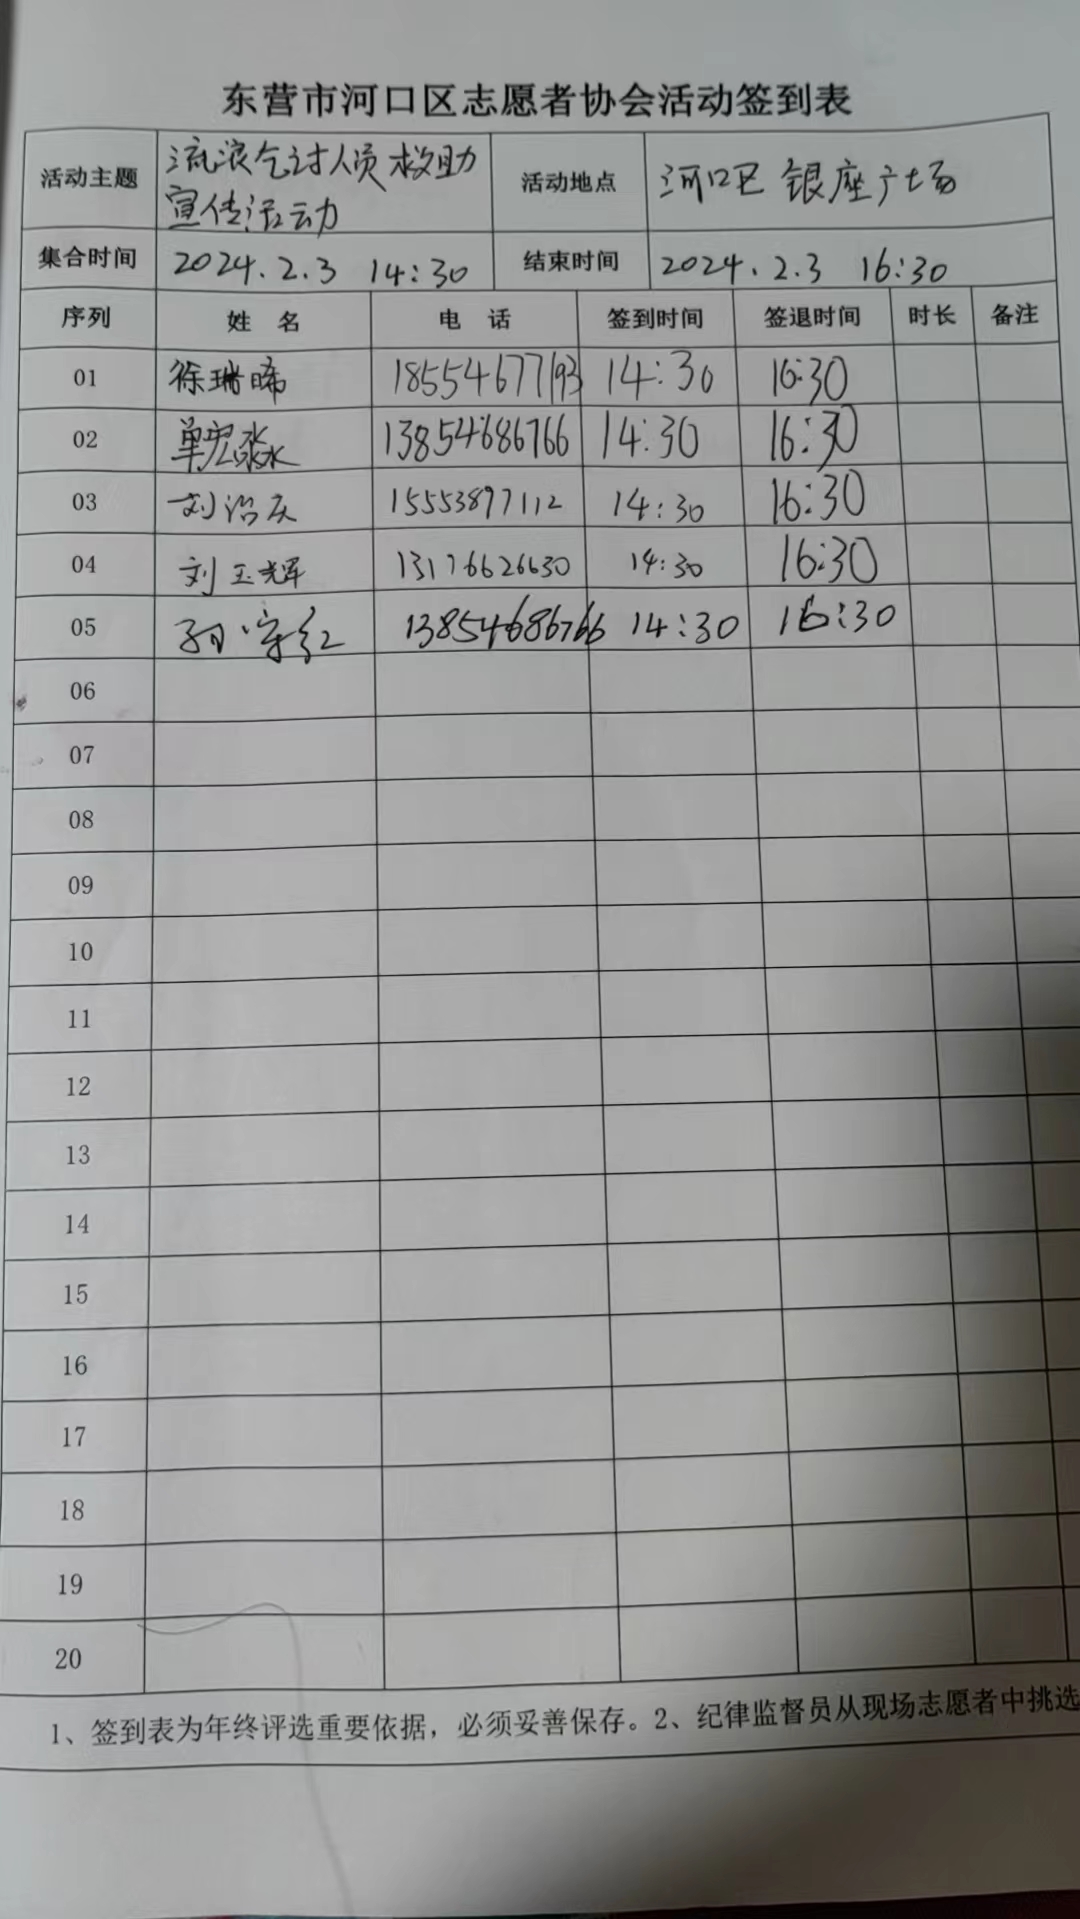 东营市河口区志愿者协会活动签到表
活动主题 流浪乞讨人员救助 活动地点 河口区 银座广场
宣传活动
集合时间 2024.2.3 14:30 结束时间 2024.2.3 16:30
序列 姓 名 电 话 签到时间 签退时间 时长 备注
01 徐瑞晞 18554677193 14:30 16:30
02 单宏淼 13854686766 14:30 16:30
03 刘治庆 15553897112 14:30 16:30
04 刘玉辉 13176626630 14:30 16:30
05 孙守红 13854686766 14:30 16:30
06
07
08
09
10
11
12
13
14
15
16
17
18
19
20
1、签到表为年终评选重要依据，必须妥善保存。2、纪律监督员从现场志愿者中挑选